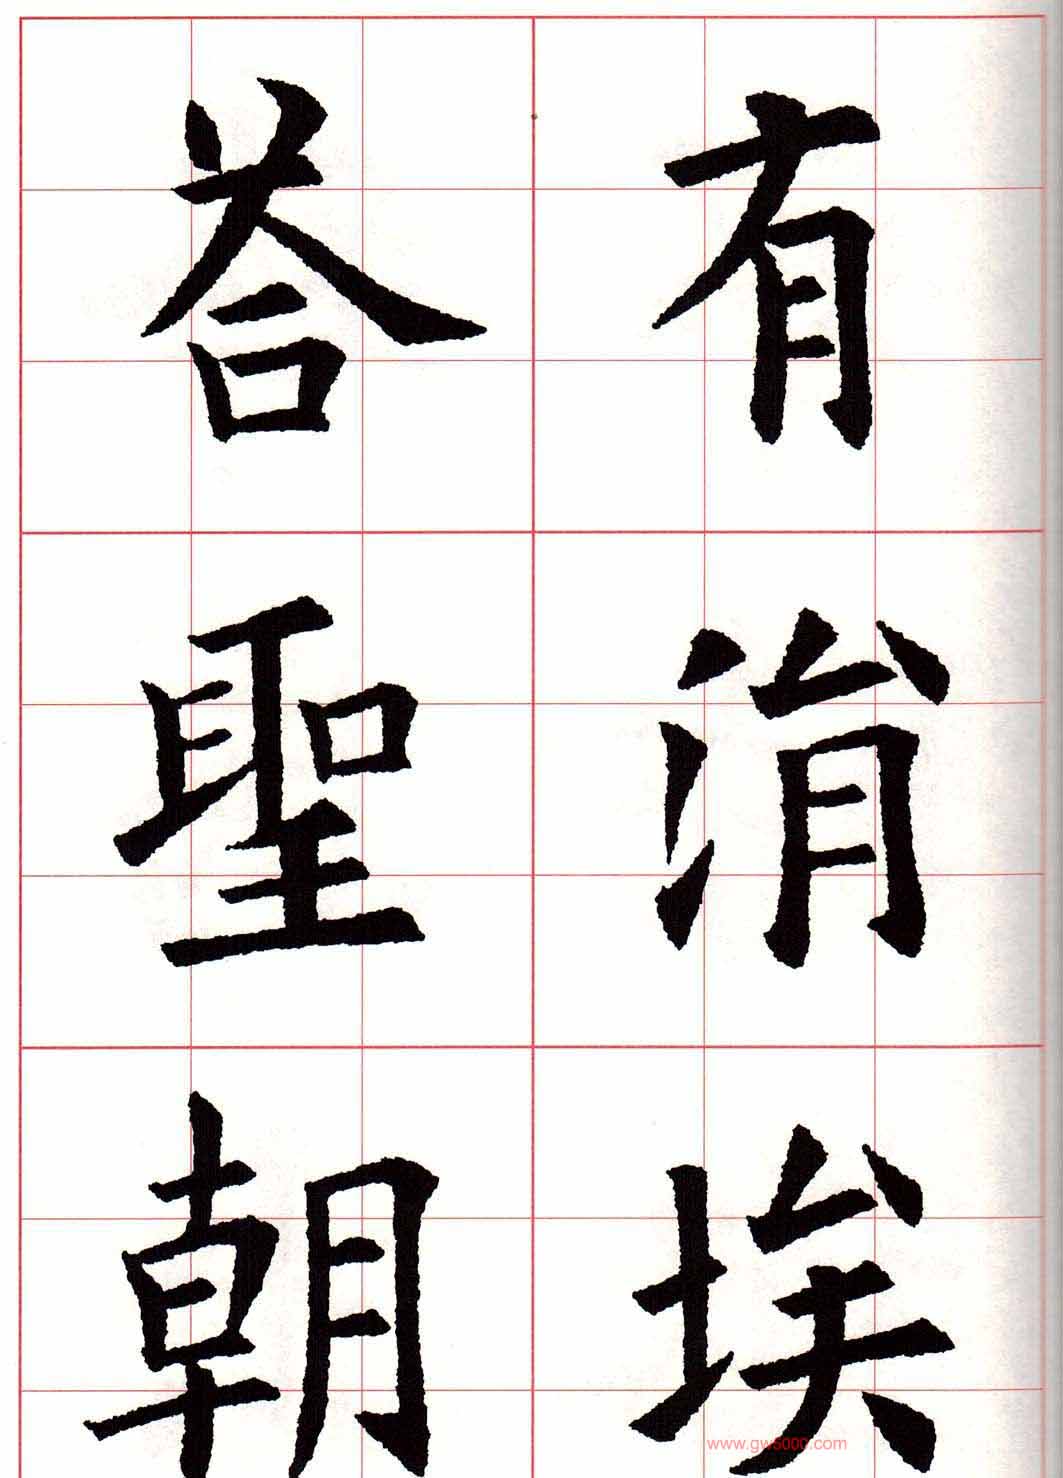 有涓埃
答聖朝
www.gw5000.com